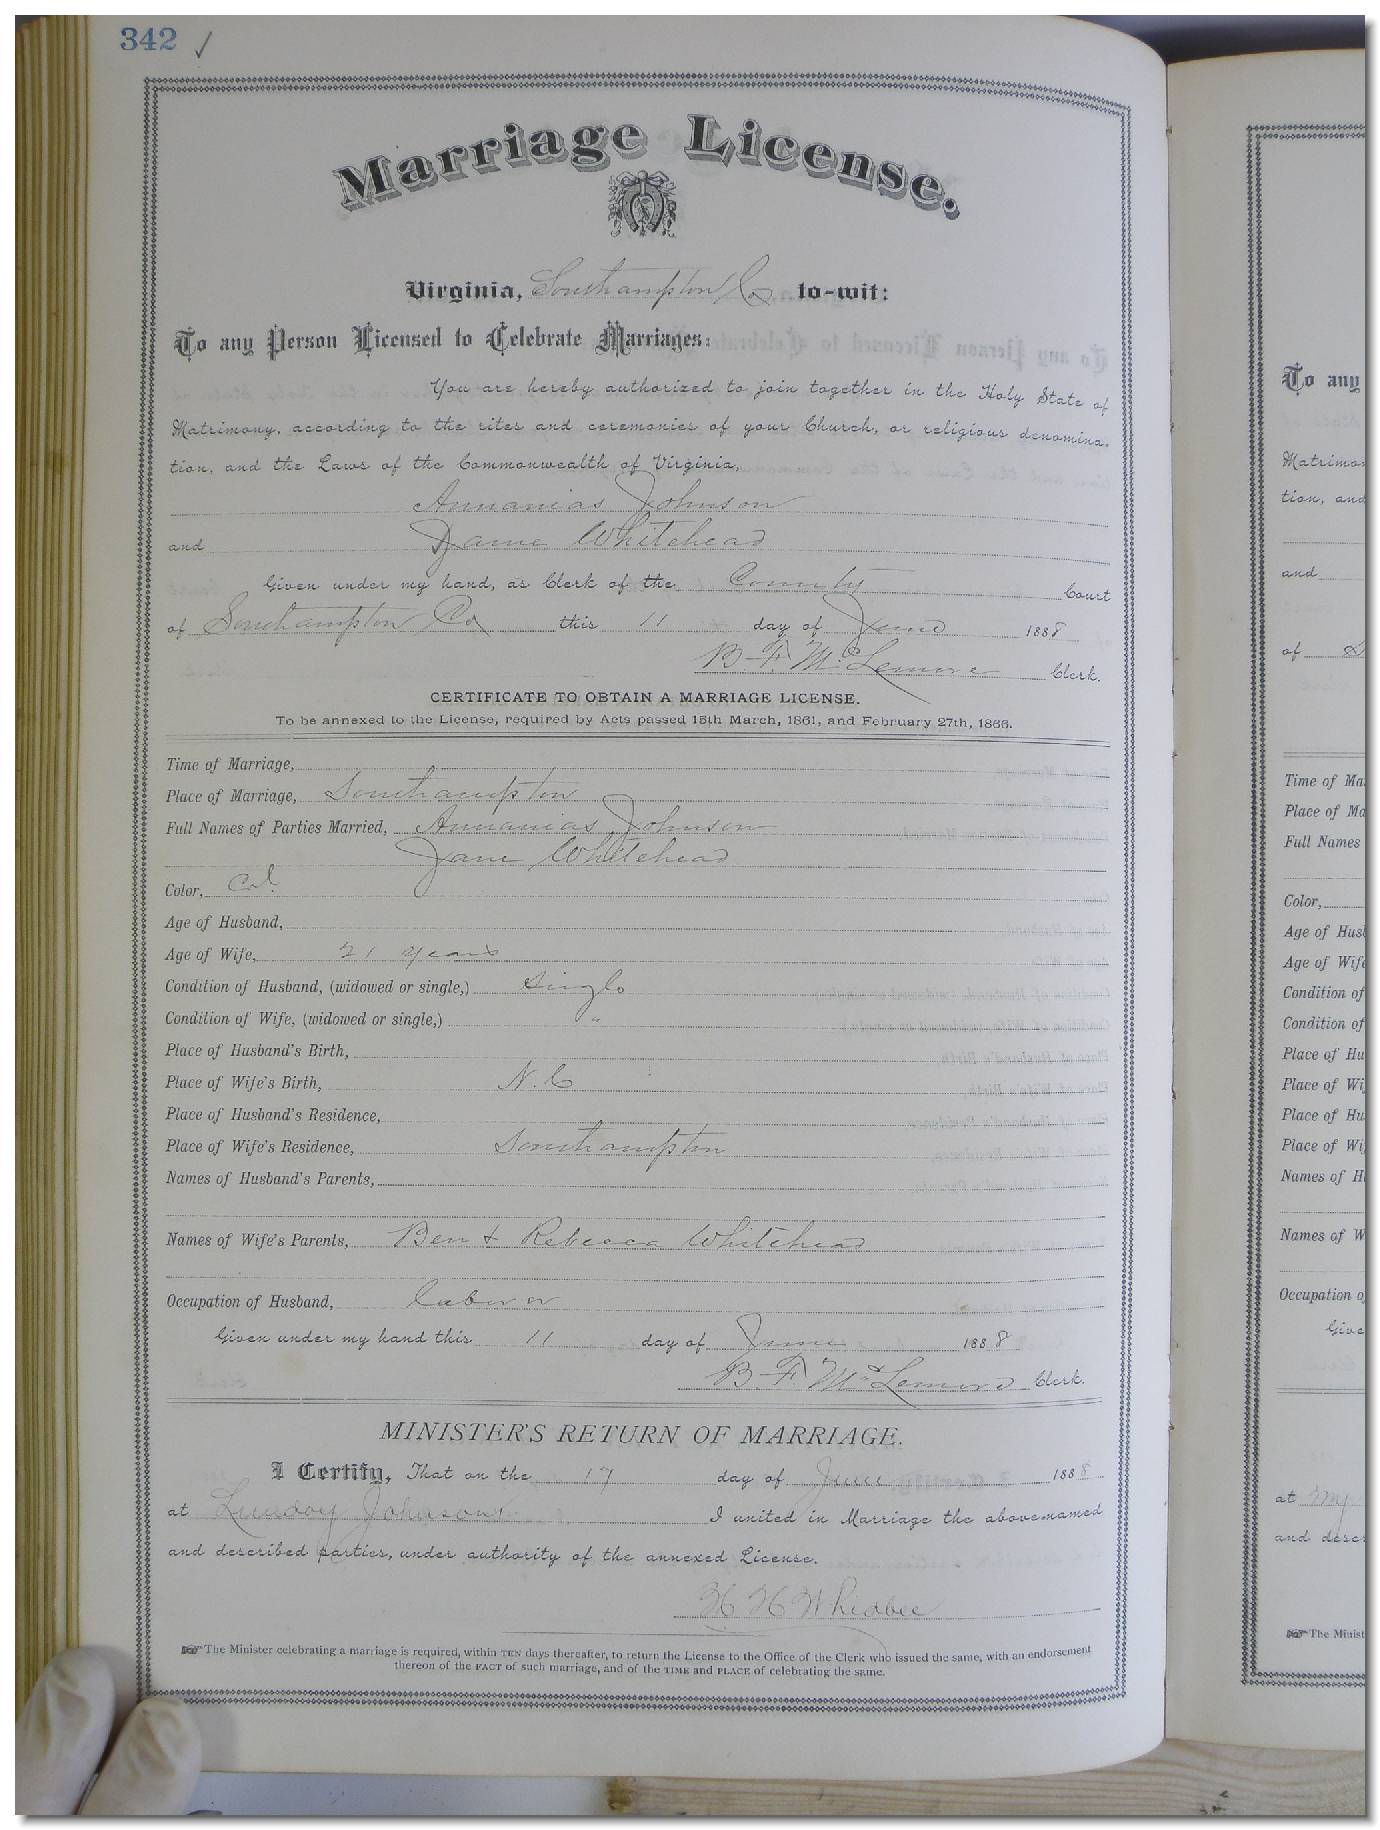 342 ✓
Marriage License.
Virginia, Southampton Co to-wit:
To any Person Licensed to Celebrate Marriages:
You are hereby authorized to join together in the Holy State of
Matrimony, according to the rites and ceremonies of your Church, or religious denomina-
tion, and the Laws of the Commonwealth of Virginia,
Annanias Johnson
and Jane Whitehead
Given under my hand, as Clerk of the County Court
of Southampton Co this 11 day of June 1888
B. F. McLemore Clerk.
CERTIFICATE TO OBTAIN A MARRIAGE LICENSE.
To be annexed to the License, required by Acts passed 15th March, 1861, and February 27th, 1866.
Time of Marriage,
Place of Marriage, Southampton
Full Names of Parties Married, Annanias Johnson
Jane Whitehead
Color, Col.
Age of Husband,
Age of Wife, 21 years
Condition of Husband, (widowed or single,) Single
Condition of Wife, (widowed or single,) "
Place of Husband's Birth,
Place of Wife's Birth, N. C
Place of Husband's Residence,
Place of Wife's Residence, Southampton
Names of Husband's Parents,
Names of Wife's Parents, Ben & Rebecca Whitehead
Occupation of Husband, Laborer
Given under my hand this 11 day of June 1888
B F McLemore Clerk.
MINISTER'S RETURN OF MARRIAGE.
I Certify, That on the 17 day of June 1888
at Johnsons I united in Marriage the above-named
and described parties, under authority of the annexed License.
H H Whidbee
☞ The Minister celebrating a marriage is required, within TEN days thereafter, to return the License to the Office of the Clerk who issued the same, with an endorsement
thereon of the FACT of such marriage, and of the TIME and PLACE of celebrating the same.
To any
Matrimo
tion, and
and
of
Time of Ma
Place of Ma
Full Names
Color,
Age of Hus
Age of Wife
Condition of
Condition of
Place of Hu
Place of Wi
Place of Hu
Place of Wi
Names of H
Names of W
Occupation o
Give
at My
and desc
☞ The Minist